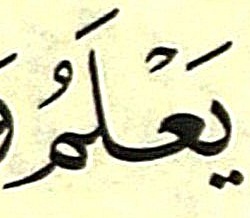 يَعْلَمُ